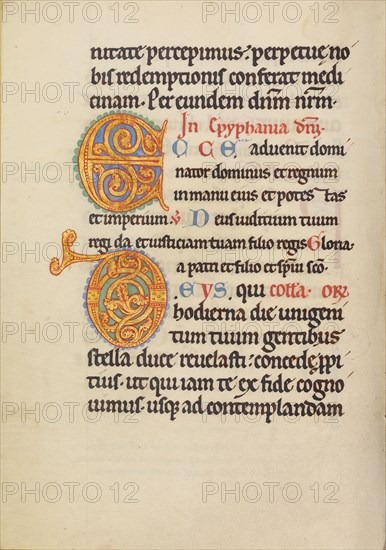 nitate percepimus. perpetue no
bis redemptionis conferat medi
cinam. Per eundem dnm nrm.
In epyphania dni.
ECCE advenit domi
nator dominus et regnum
in manu eius et potestas
et imperium. V Deus iuditium tuum
regi da. et iusticiam tuam filio regis Gloria
a patri et filio et spiui sco.
DEUS. qui colla. or
hodierna die unigeni
tum tuum gentibus
stella duce revelasti. concede ppi
tius. ut qui iam te ex fide cogno
vimus. usque ad contemplandam
PHOTO 12